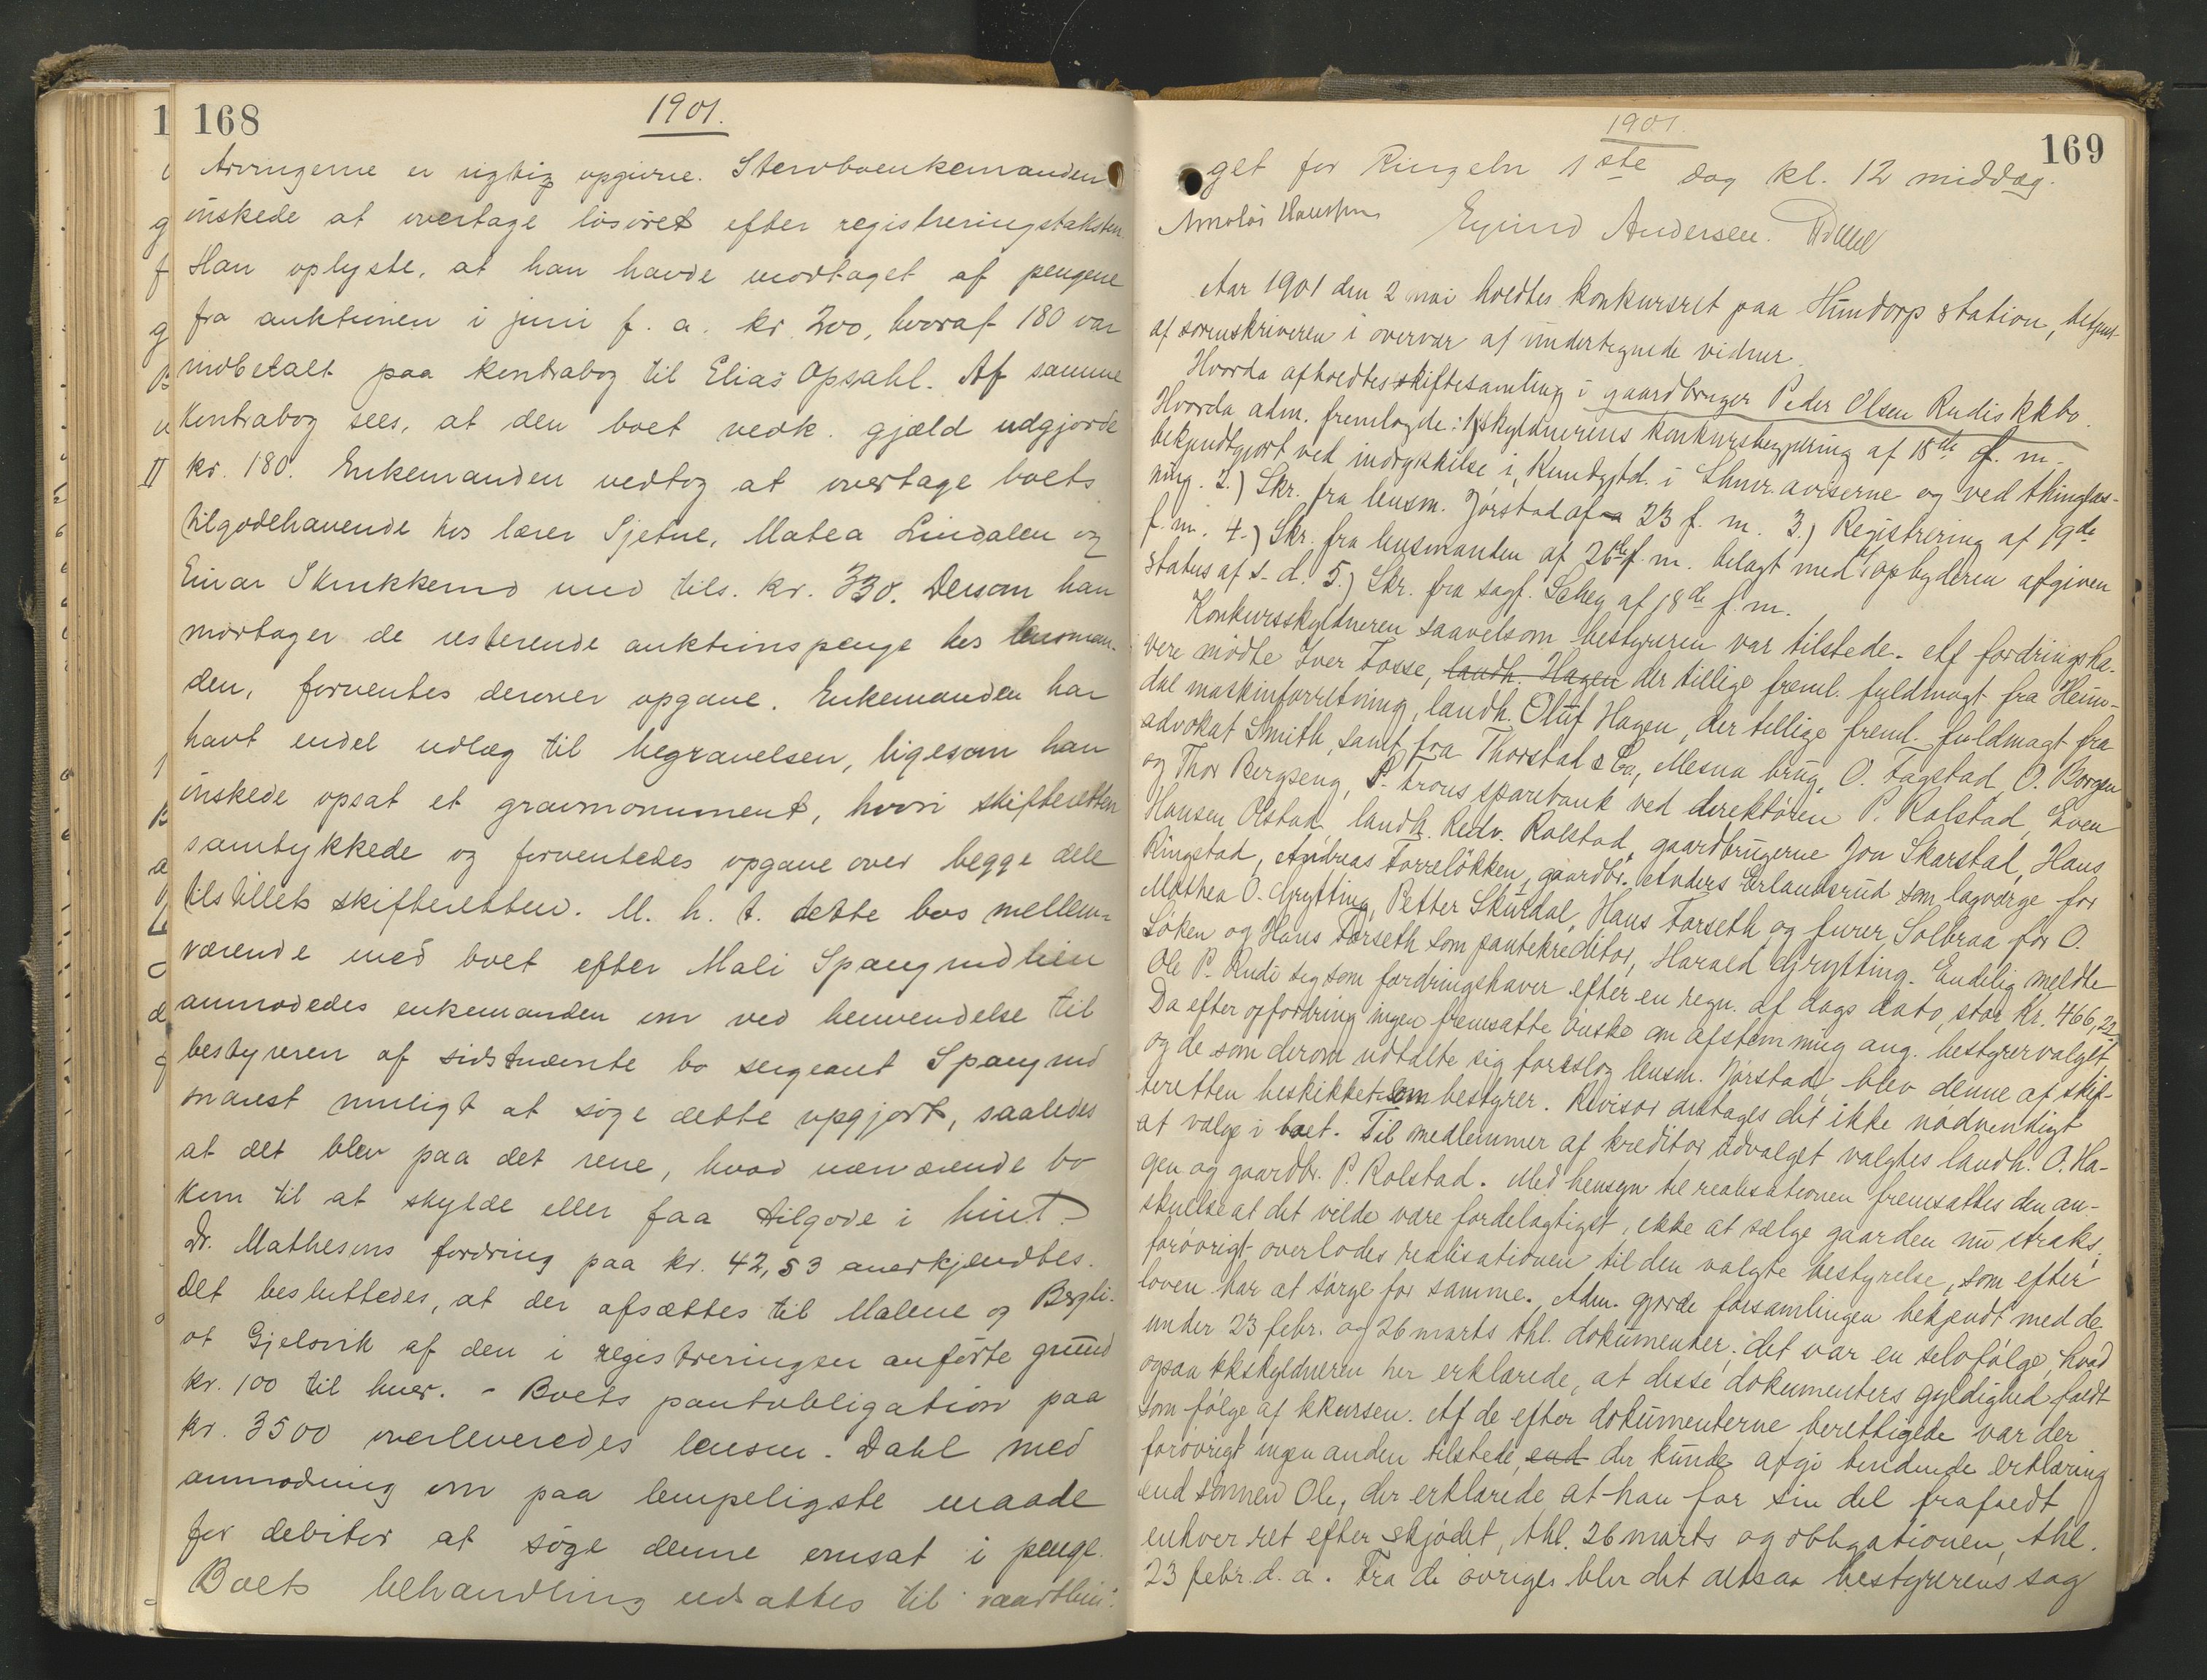 168
1901.
Arvingerne er rigtig opgivne. Stervboenkemanden
önskede at overtage lösöret efter registreringstaksten.
Han oplyste, at han havde modtaget af pengene
fra auktionen i juni f. a. kr. 200, hvoraf 180 var
indbetalt paa kontrabog til Elias Opsahl. Af samme
Kontrabog sees, at den boet vedk. gjæld udgjorde
kr. 180. Enkemanden vedtog at overtage boets
tilgodehavende hos lærer Sjetne, Matea Lindalen og
Einar Skukkerud med tils. kr. 330. Dersom han
modtager de resterende auktionspenge hos lensman-
den, forventes derover opgave. Enkemanden har
havt endel udlæg til begravelsen, ligesom han
önskede opsat et gravmonument, hvori skifteretten
samtykkede og forventedes opgave over begge dele
tilstillet skifteretten. M. h. t. dette bos mellem-
værende med boet efter Mali Spangrudlien
anmodedes enkemanden om ved henvendelse til
bestyreren af sidstnævnte bo sergeant Spangrud
snarest muligt at söge dette opgjort, saaledes
at det blev paa det rene, hvad nærværende bo
kom til at skylde eller faa tilgode i hint.-
Dr. Mathesens fordring paa kr. 42,53 anerkjendtes.
Det besluttedes, at der afsættes til Malene og Bergli-
ot Gjelsvik af den i registreringen anförte grund
kr. 100 til hver. - Boets pantobligation paa
kr. 3500 overleveredes lensm. Dahl med
anmodning om paa lempeligste maade
for debitor at söge denne omsat i penge.
Boets behandling udsattes til vaarthin-
169
1901.
get for Ringebu 1ste dag kl. 12 middag.
Eyvind Andersen.
Aar 1901 den 2 mai holdtes konkursret paa Hundorp station, betjent
af sorenskriveren i overvær af undertegnede vidner.
Hvorda afholdtes skiftesamling i gaardbruger Peder Olsen Rudis kkbo.
Hvorda adm. fremlagde: 1) skyldnerens konkursbegjæring af 18de f. m.
bekjendtgjort ved indrykkelse i Kundgjtd. i Lhmr. aviserne og ved thinglæs-
ning. 2.) Skr. fra lensm. Jörstad af 23 f. m. 3.) Registrering af 19de
f. m. 4.) Skr. fra lensmanden af 26de f. m. belagt med opbyderen afgiven
status af s. d. 5.) Skr. fra sagf. Schey af 18de f. m.
Konkursskyldneren saavelsom bestyreren var tilstede. Af fordringsha-
vere mödte Iver Fosse, landh. Hagen der tillige freml. fuldmagt fra Heim-
dal maskinforretning, landh. Oluf Hagen, der tillige freml. fuldmagt fra
advokat Smith, samt fra Thorstad & Co, Mesna brug, O. Fagstad, O. Borgen
og Thor Bergseng, S. Frons sparebank ved direktören P. Rolstad, Even
Hansen Olstad, landh. Redv. Rolstad, gaardbrugerne Jon Skarstad, Hans
Ringstad, Andreas Forrelökken, gaardbr. Anders Erlandsrud som lagværge for
Mathea O. Grytting, Petter Skurdal, Hans Forseth og furer Solbraa for O.
Löken og Hans Forseth som pantekreditor, Harald Grytting. Endelig meldte
Ole P. Rudi sig som fordringshaver efter en regn. af dags dato, stor kr. 466,22
Da efter opfordring ingen fremsatte önske om afstemning ang. bestyrervalget,
og de som derom udtalte sig foreslog lensm. Jörstad, blev denne af skif-
teretten beskikket som bestyrer. Revisor antages det ikke nödvendigt
at vælge i boet. Til medlemmer af kreditorudvalget valgtes landh. O. Ha-
gen og gaardbr. P. Rolstad. Med hensyn til realisationen fremsattes den an-
skuelse at det vilde være fordelagtigst, ikke at sælge gaarden nu straks,
forövrigt overlodes realisationen til den valgte bestyrelse, som efter
loven har at sörge for samme. Adm. gjorde forsamlingen bekjendt med de
under 23 febr. og 26 marts thl. dokumenter; det var en selvfölge, hvad
ogsaa kkskyldneren her erklærede, at disse dokumenters gyldighed faldt
som fölge af kkursen. Af de efter dokumenterne berettigede var der
forövrigt ingen anden tilstede, end der kunde afgi bindende erklæring
end sönnen Ole, der erklærede at han for sin del frafaldt
enhver ret efter skjödet, thl. 26 marts og obligationen, thl.
23 febr. d. a. Fra de övriges blev det altsaa bestyrerens sag